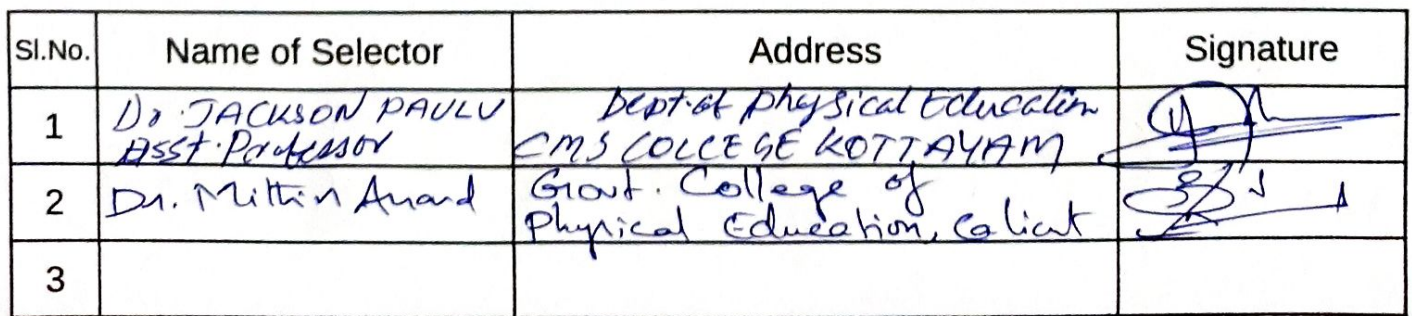 Sl.No. Name of Selector Address Signature
1 Dr. JACKSON PAULU Dept. of Physical Education
Asst. Professor CMS COLLEGE KOTTAYAM
2 Dr. Mithin Anand Govt. College of
Physical Education, Calicut
3